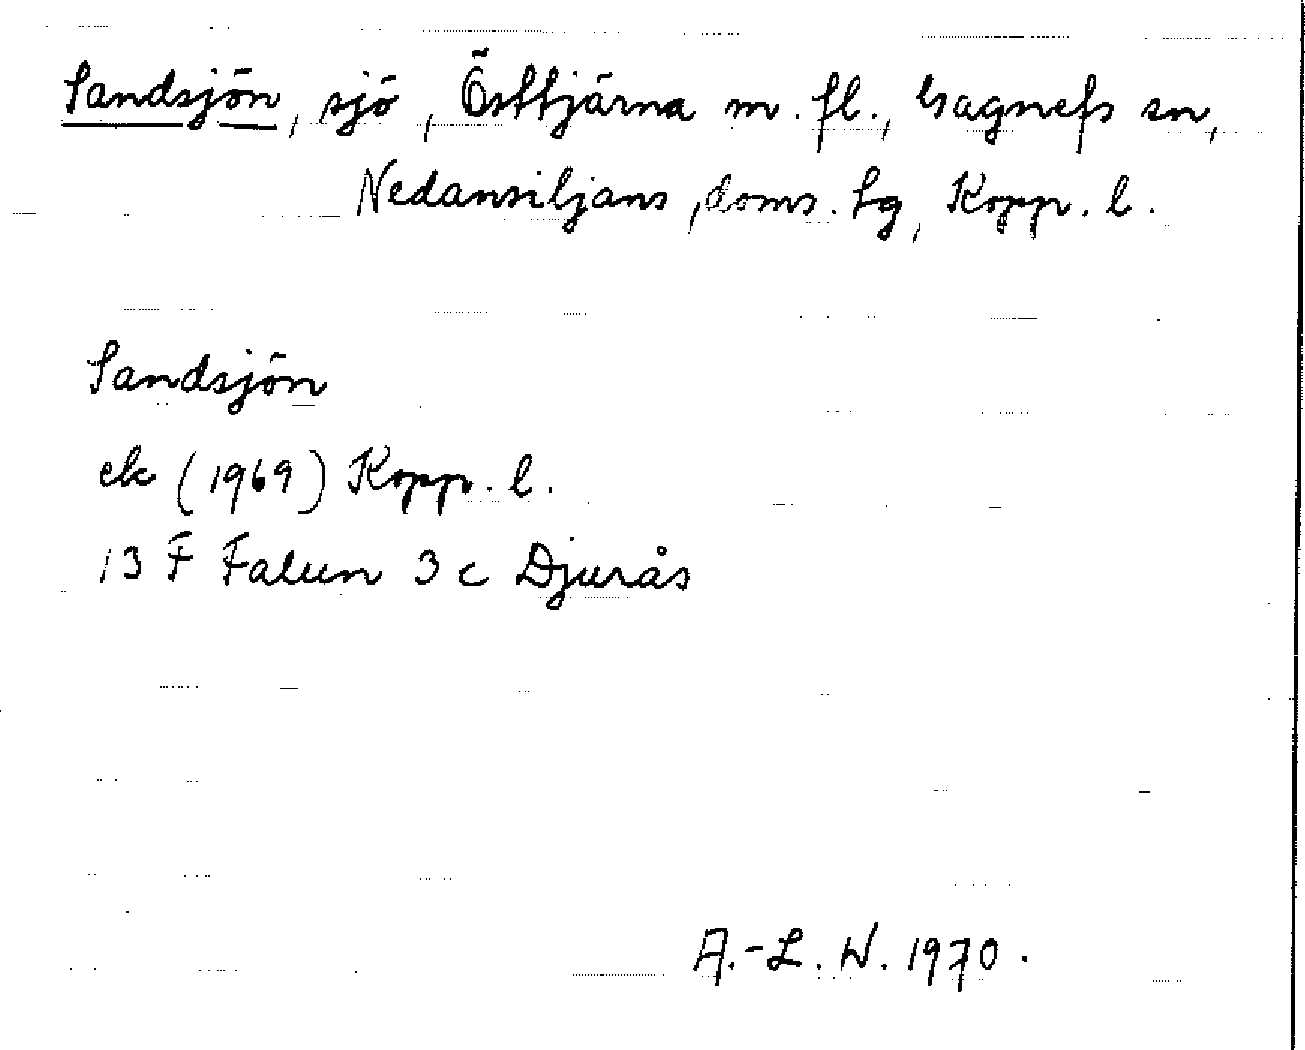 Sandsjön, sjö, Östtjärna m. fl., Gagnefs sn,
Nedansiljans doms. tg, Kopp. l.
Sandsjön
ek (1969) Kopp. l.
13 F Falun 3 c Djurås
A.-L. W. 1970.